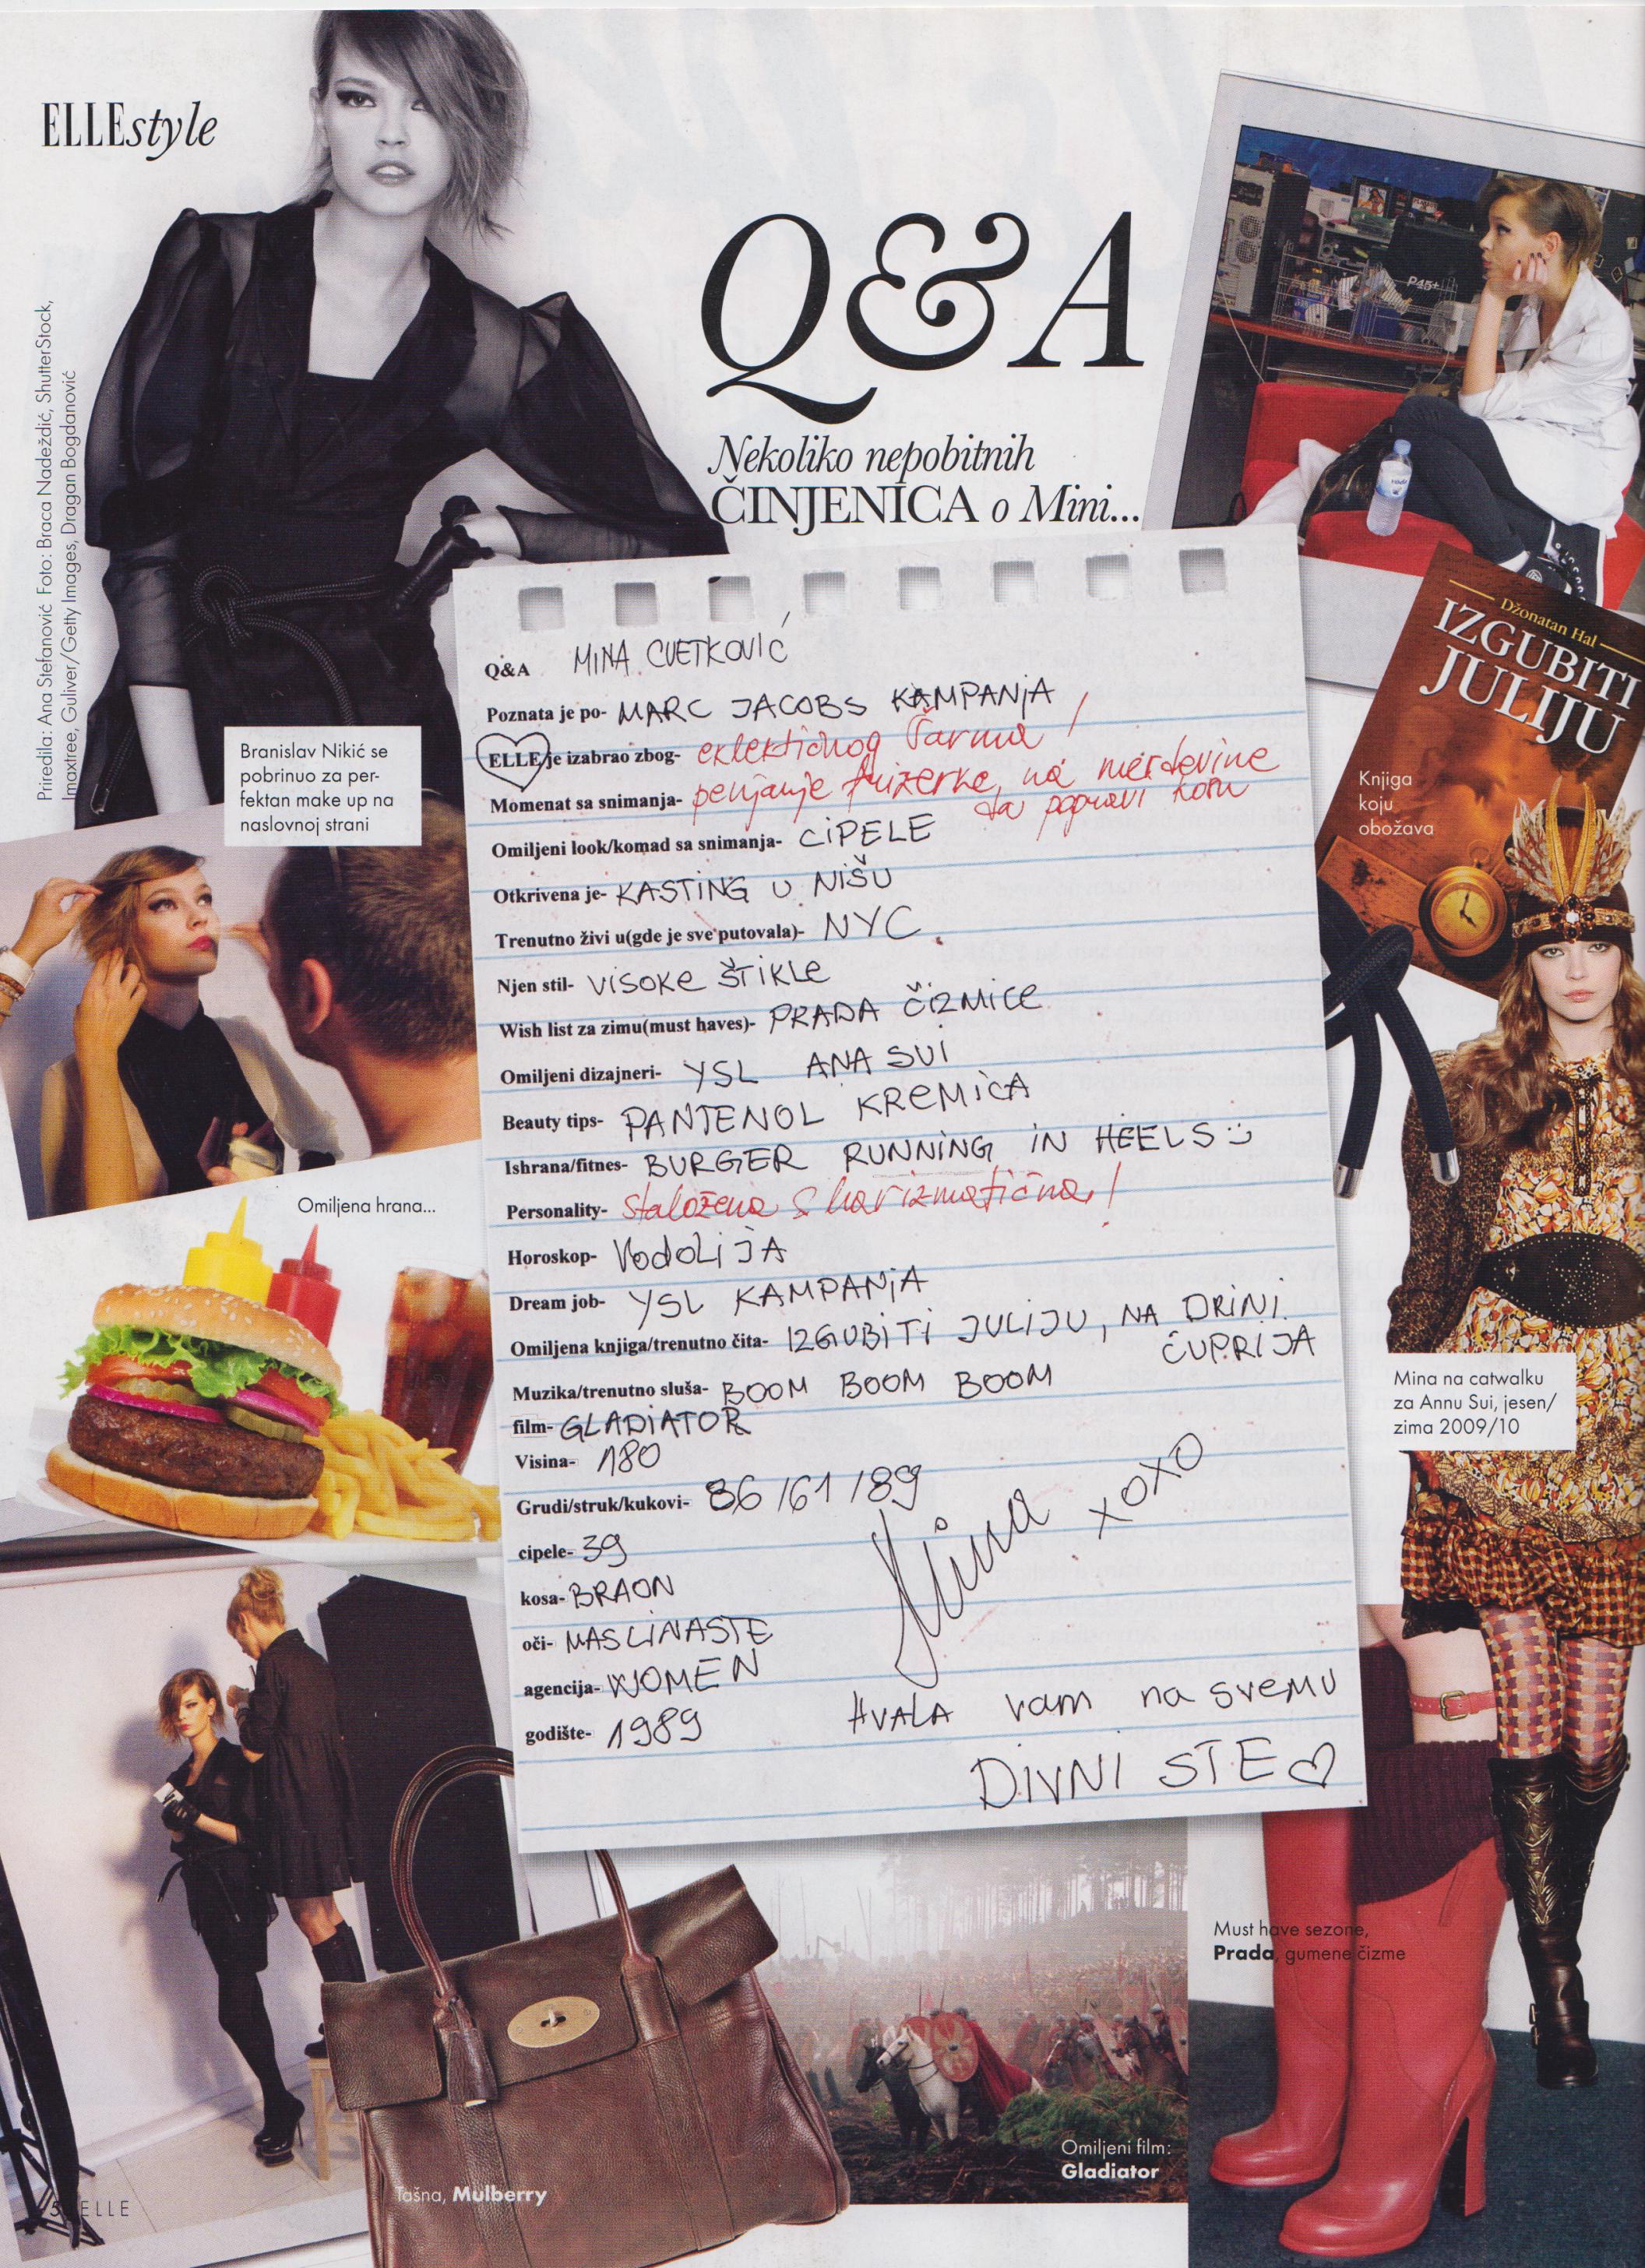 ELLEstyle
Q&A
Nekoliko nepobitnih
ČINJENICA o Mini...
Priredila: Ana Stefanović Foto: Braca Nadeždić, ShutterStock,
Imaxtree, Guliver/Getty Images, Dragan Bogdanović
Branislav Nikić se
pobrinuo za per-
fektan make up na
naslovnoj strani
Omiljena hrana...
Q&A MINA CVETKOVIĆ
Poznata je po- MARC JACOBS KAMPANJA
ELLE je izabrao zbog- eklektičnog šarma!
Momenat sa snimanja- penjanje frizerke na merdevine
da popravi kosu
Omiljeni look/komad sa snimanja- CIPELE
Otkrivena je- KASTING U NIŠU
Trenutno živi u(gde je sve putovala)- NYC.
Njen stil- VISOKE ŠTIKLE
Wish list za zimu(must haves)- PRADA ČIZMICE
Omiljeni dizajneri- YSL ANA SUI
Beauty tips- PANTENOL KREMICA
Ishrana/fitnes- BURGER RUNNING IN HEELS :)
Personality- staložena & harizmatična!
Horoskop- VODOLIJA
Dream job- YSL KAMPANJA
Omiljena knjiga/trenutno čita- IZGUBITI JULIJU, NA DRINI
ĆUPRIJA
Muzika/trenutno sluša- BOOM BOOM BOOM
film- GLADIATOR
Visina- 180
Grudi/struk/kukovi- 86/61/89
cipele- 39
kosa- BRAON
oči- MASLINASTE
agencija- WOMEN
godište- 1989
Mina xoxo
HVALA vam na svemu
DIVNI STE ♡
P45+
Džonatan Hal
IZGUBITI
JULIJU
Knjiga
koju
obožava
Mina na catwalku
za Annu Sui, jesen/
zima 2009/10
Must have sezone,
Prada, gumene čizme
Omiljeni film:
Gladiator
Tašna, Mulberry
ELLE